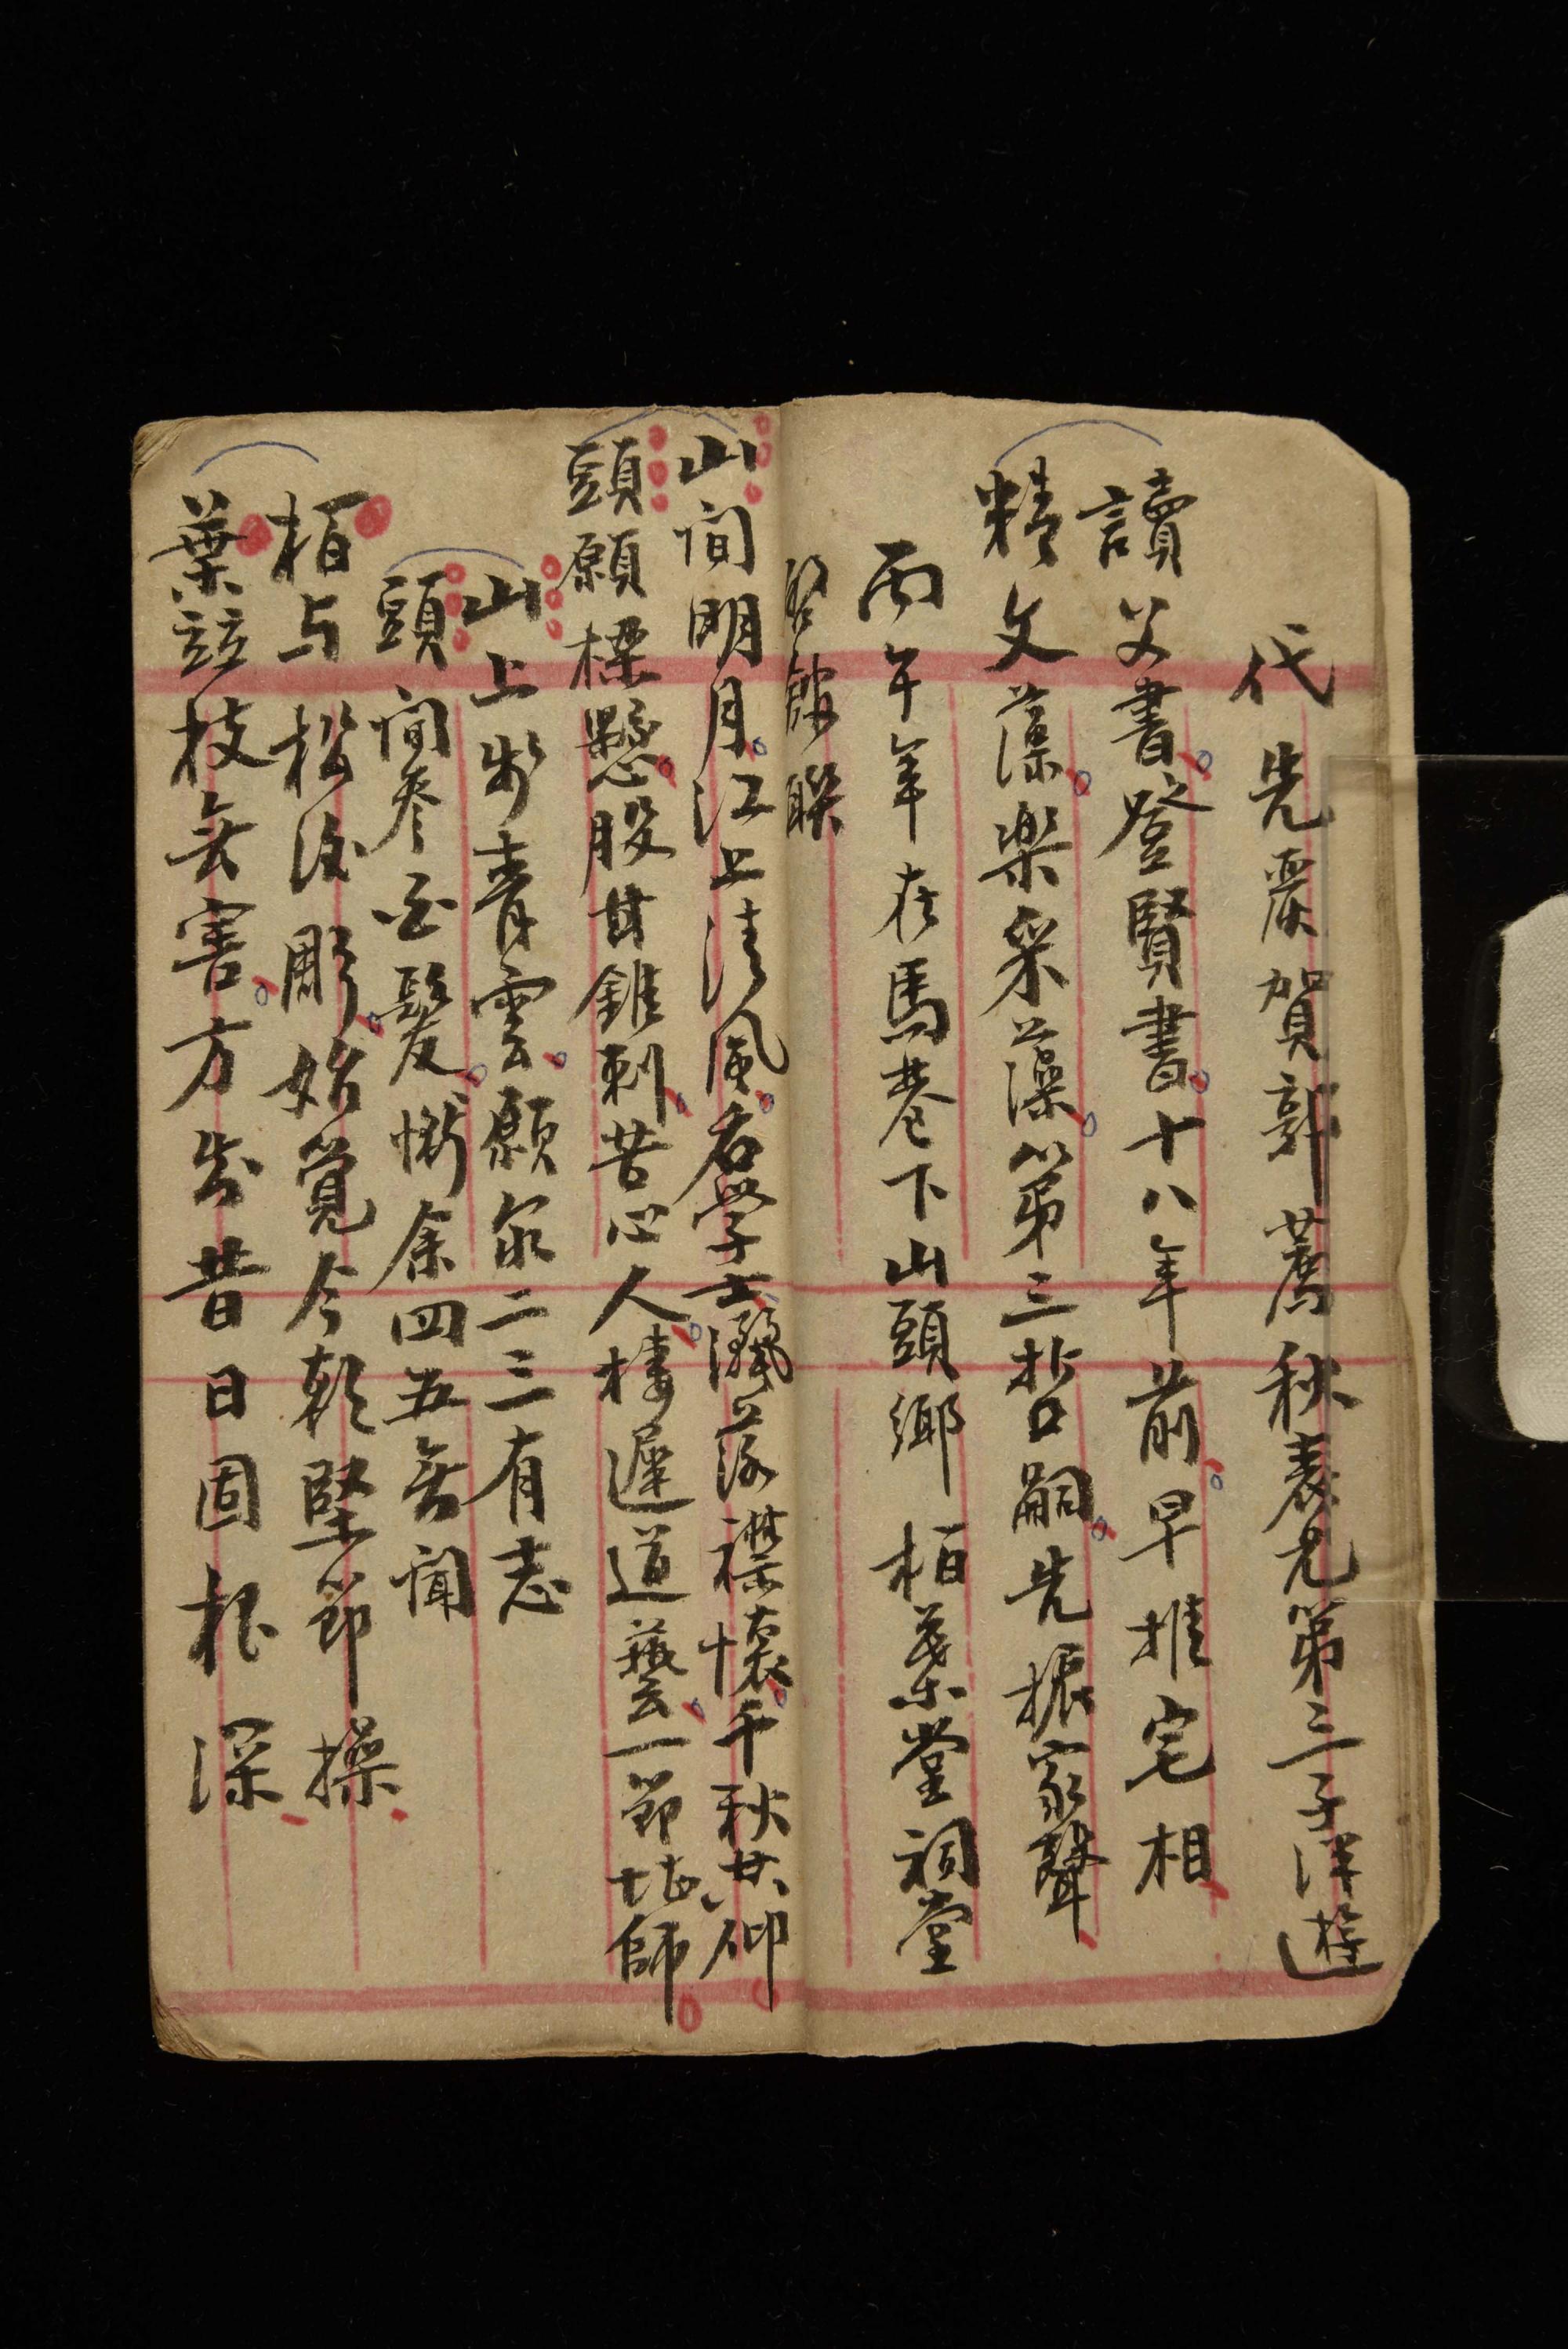 代先嚴賀郭薦秋表兄第三子洋遊
讀父書之登賢書十八年前早推宅相
精文藻樂采藻第三哲嗣先振家聲
丙午年在馬巷下山頭鄉柏葉堂祠堂
啓館聯
山间明月江上清风名学士灑落襟懷千秋共仰
頭願樑懸股甘錐刺苦心人棲遲道藝一節堪師
山上步青雲願家二三有志
頭间參白髮慚余四五無聞
栢与松後彫始覺今朝堅節操
葉該枝無害方知昔日固根深